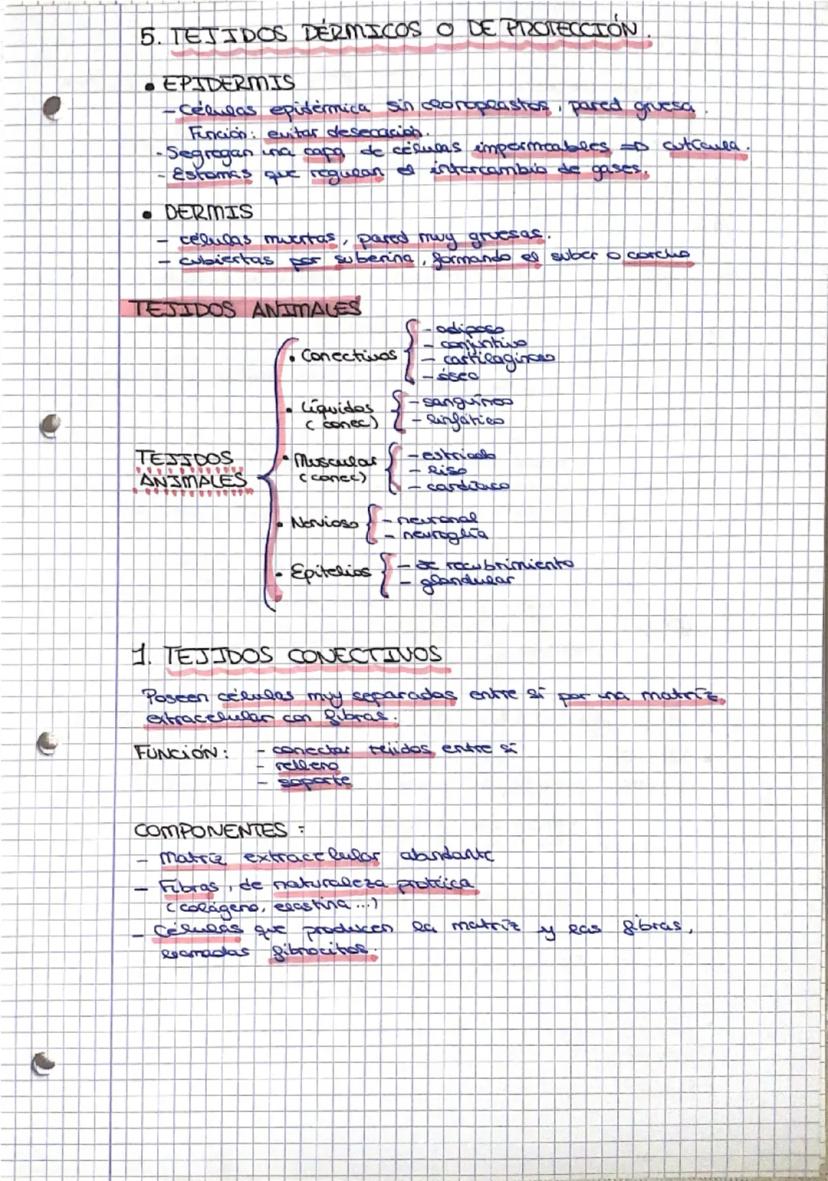 5. TEJIDOS DÉRMICOS O DE PROTECCIÓN.
• EPIDERMIS
- Células epidérmica sin cloroplastos, pared gruesa.
Función: evitar desecación.
- Segregan una capa de células impermeables => cutícula.
- Estomas que regulan el intercambio de gases.
• DERMIS
- células muertas, pared muy gruesas.
- cubiertas por suberina, formando el suber o corcho
TEJIDOS ANIMALES
TEJIDOS ANIMALES
• Conectivos
- adiposo
- conjuntivo
- cartilaginoso
- óseo
• Líquidos (conec)
- sanguíneo
- linfático
• Muscular (conec)
- estriado
- liso
- cardíaco
• Nervioso
- neuronal
- neuroglía
• Epitelios
- de recubrimiento
- glandular
1. TEJIDOS CONECTIVOS
Poseen células muy separadas entre sí por una matriz
extracelular con fibras.
FUNCIÓN: - conectar tejidos entre sí
- relleno
- soporte
COMPONENTES:
- Matriz extracelular abundante
- Fibras, de naturaleza protéica
(colágeno, elastina...)
- Células que producen la matriz y las fibras,
llamadas fibrocitos.